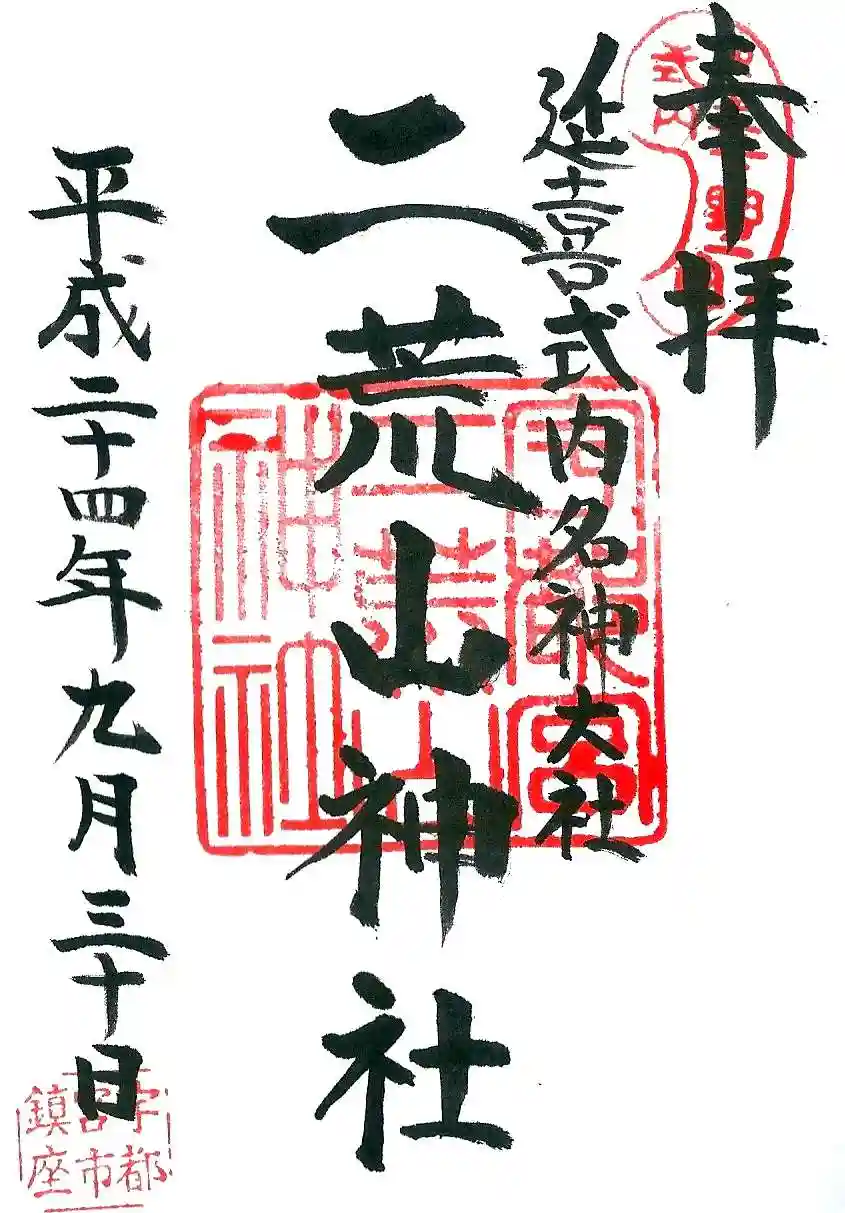 奉拝
延喜式内名神大社
二荒山神社
平成二十四年九月三十日
宇都宮
二荒山
神社
宇都
宮市
鎮座